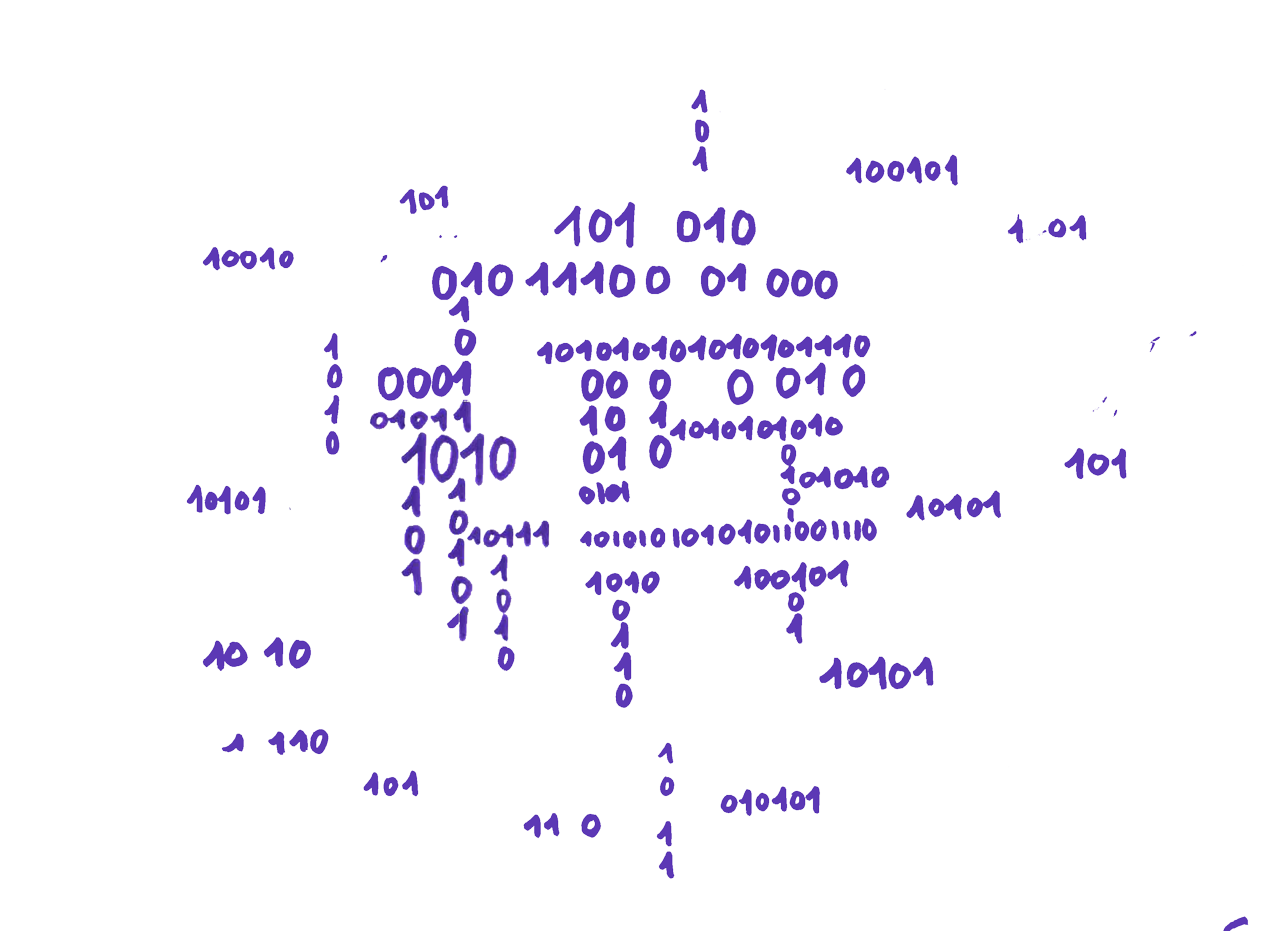 1
0
1
100101
101
101 010
1 01
10010
010 11100 01 000
1
0
1
0
1
0
10101010101010101110
0001
00 0 0 010
01011
10 1
1010101010
1010
01 0
0
101
101010
0
10101
0101
10101
1
0
1
1
0
1
0
1
10111
1010101010101011001110
1
0
1
0
1010
0
1
1
0
100101
0
1
10 10
10101
1 110
101
1
0
1
1
010101
11 0